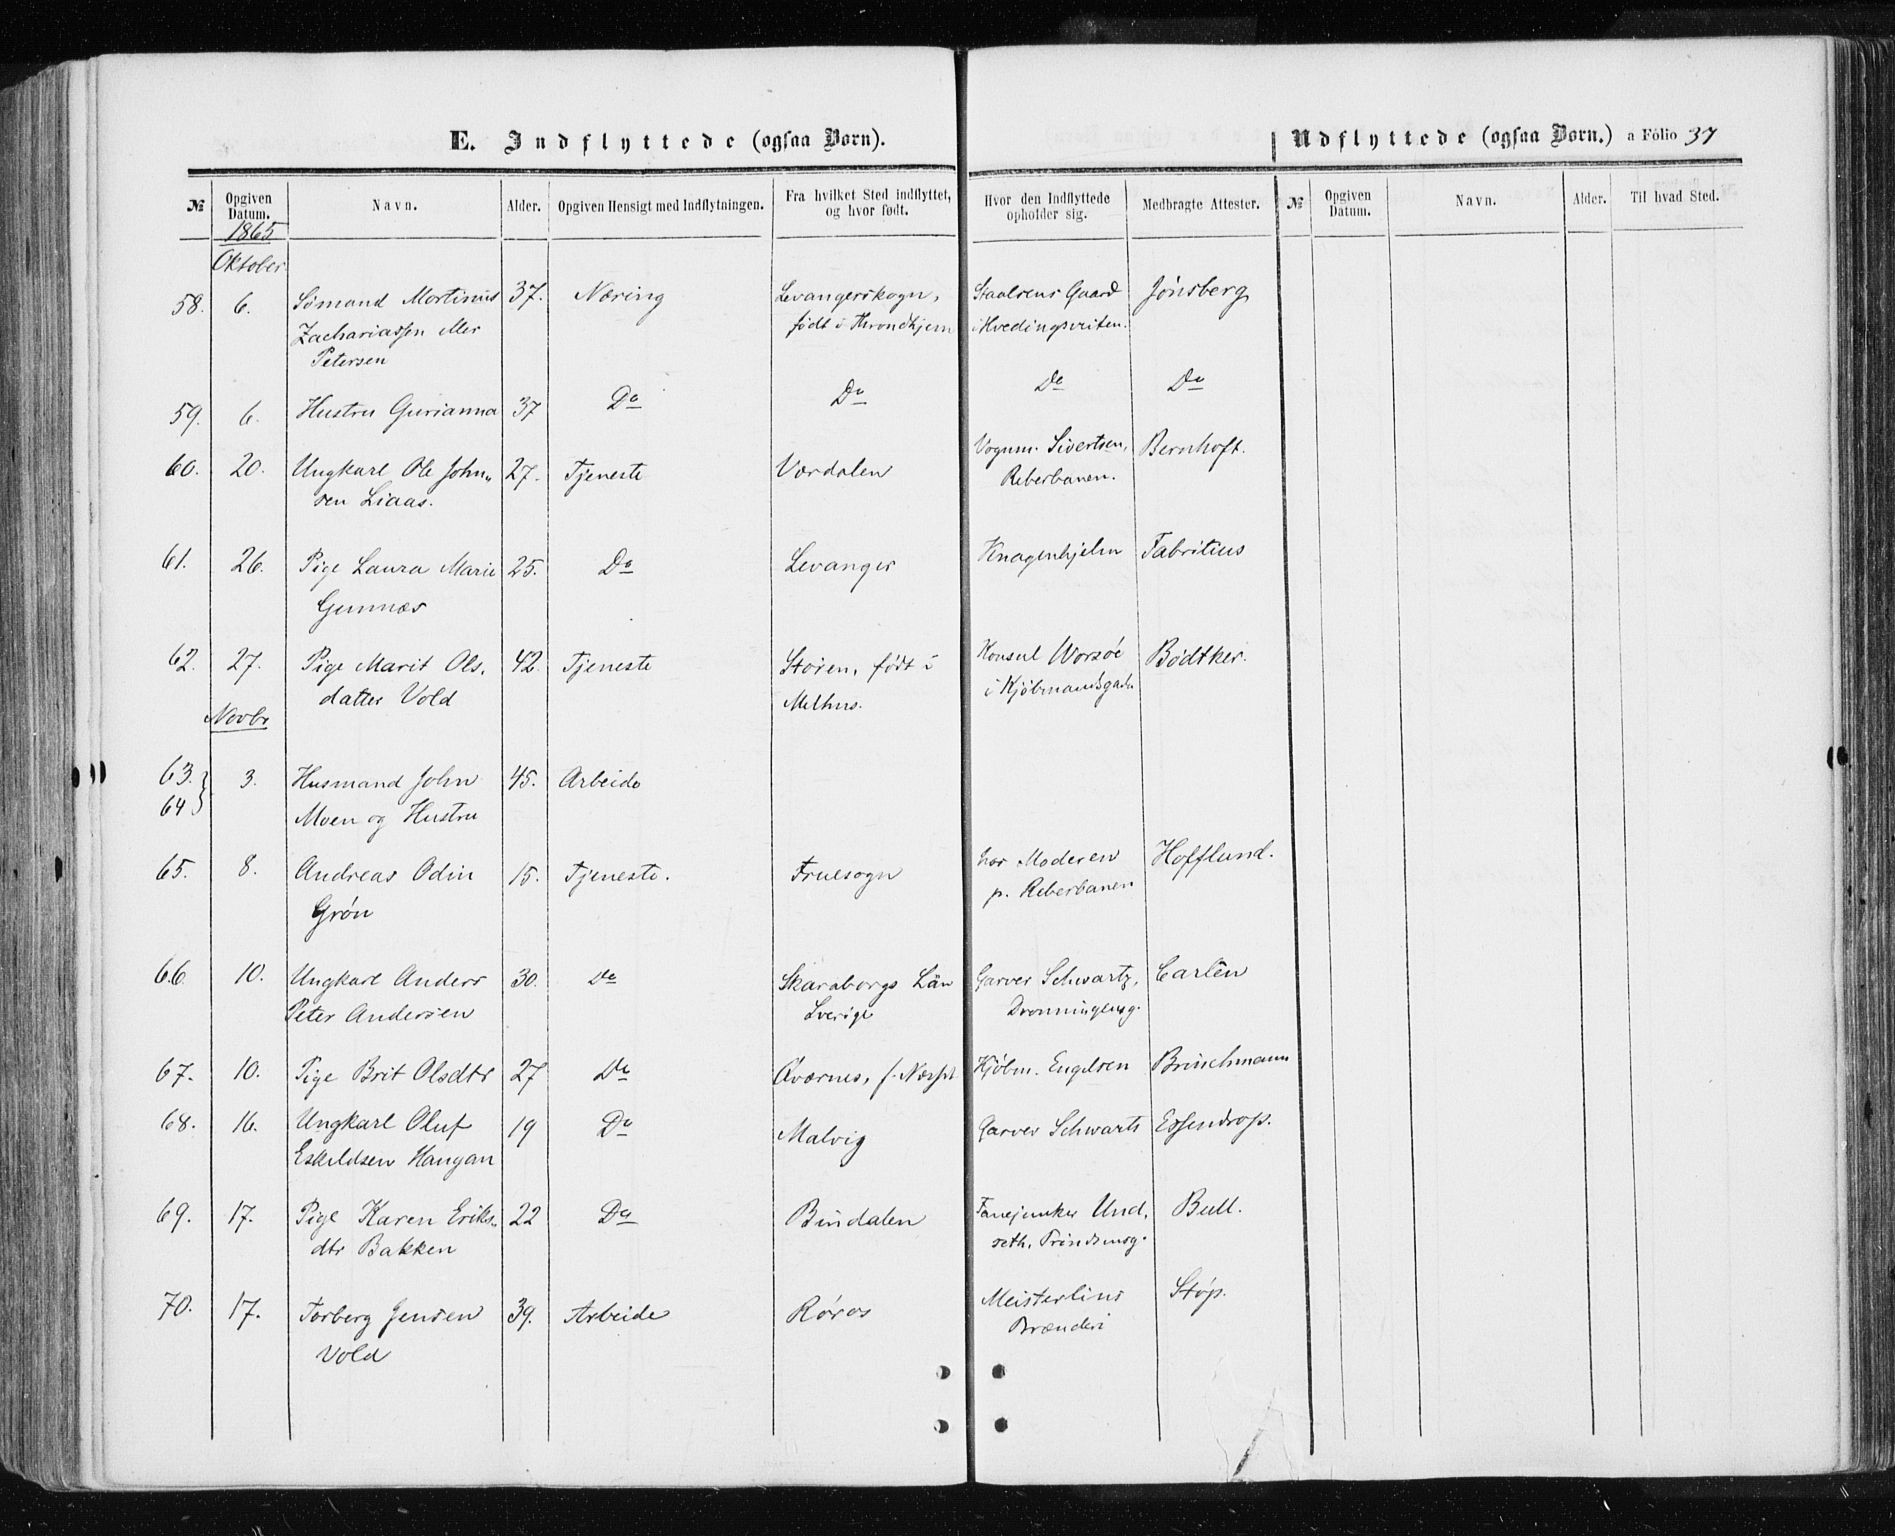 E. Indflyttede (ogsaa Børn).
Udflyttede (ogsaa Børn.) a Fólio 37
№ Opgiven Datum. Navn. Alder. Opgiven Hensigt med Indflytningen. Fra hvilket Sted indflyttet, og hvor født. Hvor den Indflyttede opholder sig. Medbragte Attester. № Opgiven Datum. Navn. Alder. Til hvad Sted.
1865
Oktober
58. 6. Sømand Mortinus 37. Næring Levangerskogn, Staalsens Gaard Jønsberg
Zachariassen eller født i Throndhjem i Hvedingsveiten.
Petersen
59. 6. Hustru Gurianna 37 Do Do Do Do
60. 20. Ungkarl Ole John„ 27. Tjeneste Værdalen Vognm. Sivertsen, Bernhoft.
sen Liaas. Reberbanen.
61. 26. Pige Laura Marie 25. Do Levanger Knagenhjelm Fabritius
Gunnæs
62. 27. Pige Marit Ols. 42. Tjeneste Støren, født i Konsul Worsøe Bödtker.
datter Vold Melhus. i Kjøbmandsgade
Novbr
63. 3. Husmand John 45. Arbeide
64 Moen og Hustru
65. 8. Andreas Odin 15. Tjeneste. Fruesogn hos Moderen Hofflund.
Grøn p. Reberbanen
66 10. Ungkarl Anders 30. Do Skaraborgs Län Garver Schwartz, Carlén
Peter Andersen Sverige Dronningensg.
67. 10. Pige Brit Olsdtr 27 Do Qværnes, f. Kjøbm. Engelsen Brinchmann
68. 16. Ungkarl Oluf 19 Do Malvig Garver Schwarts Essendrop.
Eskildsen Haugan
69. 17. Pige Karen Eriks„ 22 Do Bindalen Fanejunker Und, Bull.
dtr Bakken seth, Prindsensg.
70. 17. Torberg Jensen 39. Arbeide Røros Meisterlins Støp.
Vold Brænderi